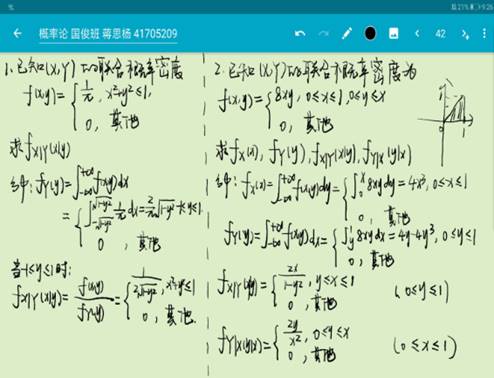 21% 9:26
← 概率论 国俊班 蒋思杨 41705209 42
1. 已知(X,Y)的联合概率密度
f(x,y)={ 1/π, x²+y²≤1,
0, 其他
求f_{X|Y}(x|y)
解: f_Y(y)=∫_{-∞}^{+∞} f(x,y)dx
={ ∫_{-√(1-y²)}^{√(1-y²)} 1/π dx=2/π √(1-y²) -1≤y≤1
0, 其他
当-1≤y≤1时:
f_{X|Y}(x|y)=f(x,y)/f_Y(y)={ 1/(2√(1-y²)), x²+y²≤1
0, 其他.
2. 已知(X,Y)的联合概率密度为
f(x,y)={ 8xy, 0≤x≤1, 0≤y≤x
0, 其他
求f_X(x), f_Y(y), f_{X|Y}(x|y), f_{Y|X}(y|x)
解: f_X(x)=∫_{-∞}^{+∞} f(x,y)dy={ ∫_0^x 8xydy=4x³, 0≤x≤1
0, 其他
f_Y(y)=∫_{-∞}^{+∞} f(x,y)dx={ ∫_y^1 8xydx=4y-4y³, 0≤y≤1
0, 其他
f_{X|Y}(x|y)={ 2x/(1-y²), y≤x≤1
0, 其他 (0≤y≤1)
f_{Y|X}(y|x)={ 2y/x², 0≤y≤x
0, 其他 (0≤x≤1)